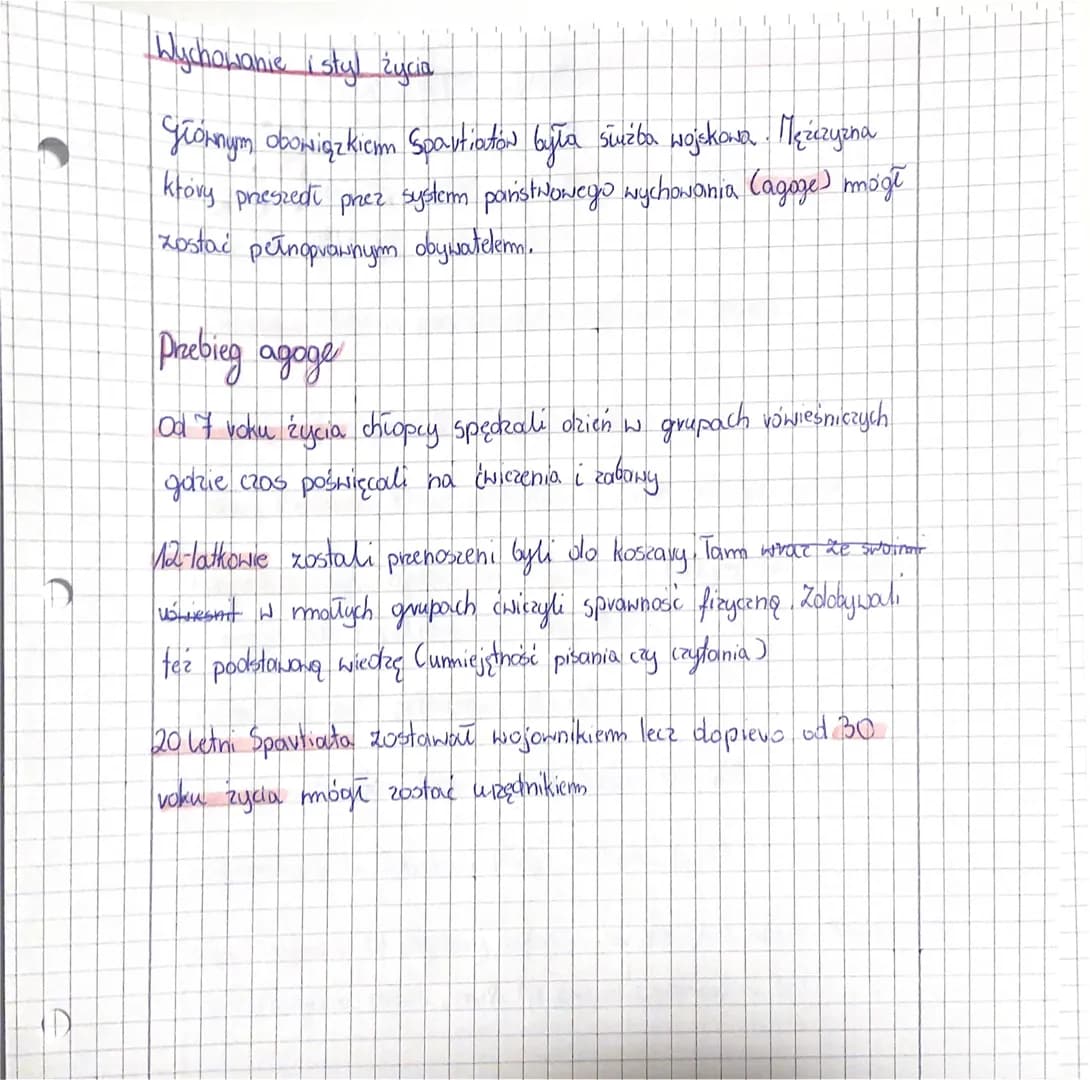 Wychowanie i styl życia
Głównym obowiązkiem Spartiatów była służba wojskowa. Mężczyzna
który przeszedł przez system państwowego wychowania (agoge) mógł
zostać pełnoprawnym obywatelem.
Przebieg agoge
Od 7 roku życia chłopcy spędzali dzień w grupach rówieśniczych
gdzie czas poświęcali na ćwiczenia i zabawy
12-latkowie zostali przenoszeni byli do koszary. Tam wraz ze swoimi
w małych grupach ćwiczyli sprawność fizyczną. Zdobywali
też podstawową wiedzę (umiejętność pisania czy czytania)
20 letni Spartiata zostawał wojownikiem lecz dopiero od 30
roku życia mógł zostać urzędnikiem